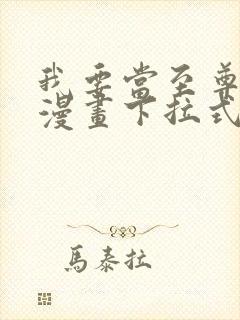 我要當至尊
漫畫下拉式
馬泰拉